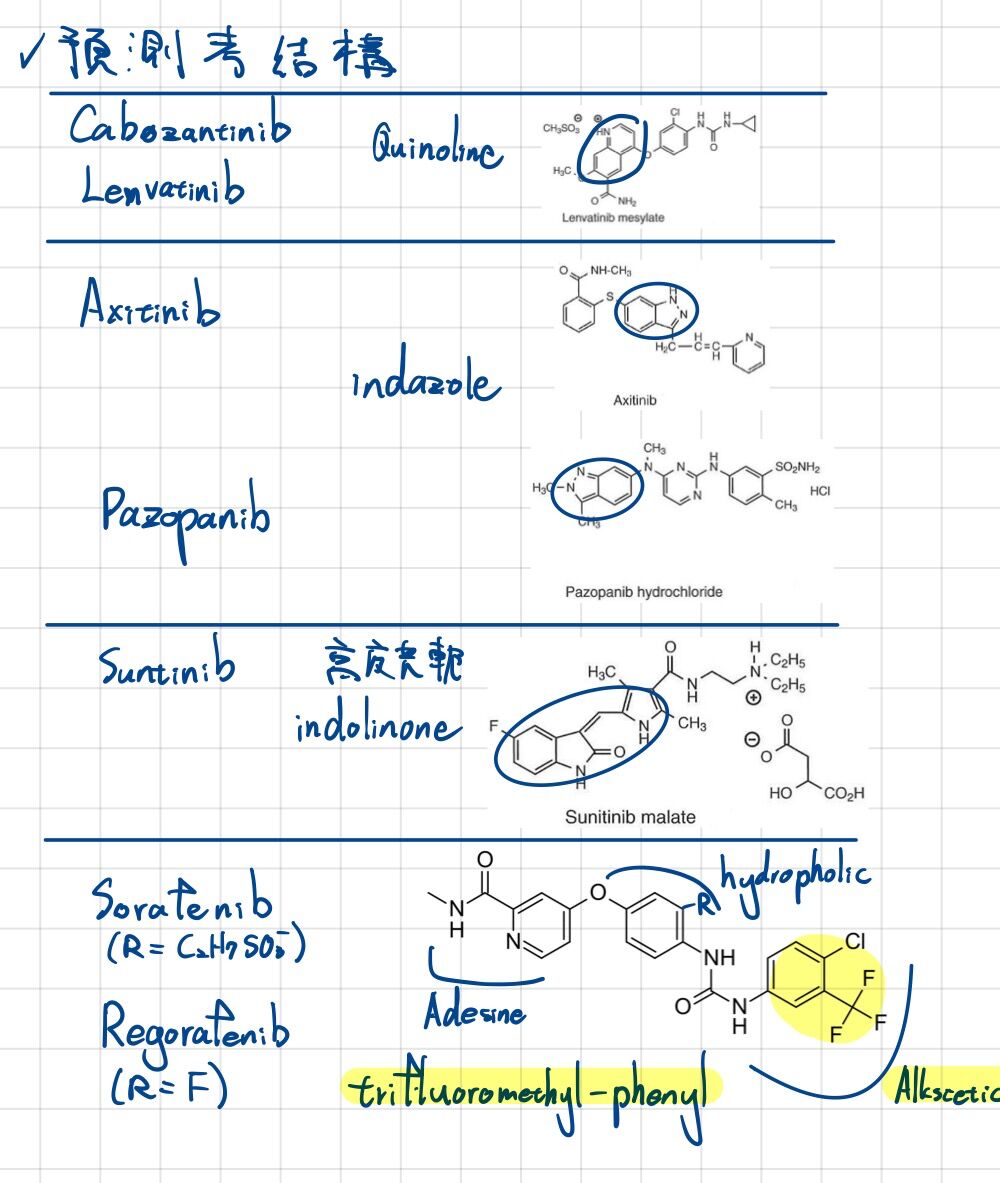 ✓預測考結構
Cabozantinib
Lenvatinib
Quinoline
CH₃SO₃ ⊖ ⊕ HN Cl H N H N O O H₃C O O NH₂
Lenvatinib mesylate
Axitinib
indazole
O NH-CH₃ S H N N H₂C H C=C H N
Axitinib
Pazopanib
H₃C N N CH₃ CH₃ N N N H N SO₂NH₂ CH₃ HCl
Pazopanib hydrochloride
Suntinib
indolinone
F N H O H₃C N H CH₃ O N H H N C₂H₅ C₂H₅ ⊕ ⊖ O O HO CO₂H
Sunitinib malate
Sorafenib
(R = C₂H₇SO₃⁻)
Regorafenib
(R = F)
O N H N O R NH O N H Cl F F F
hydropholic
Adesine
trifluoromethyl-phenyl